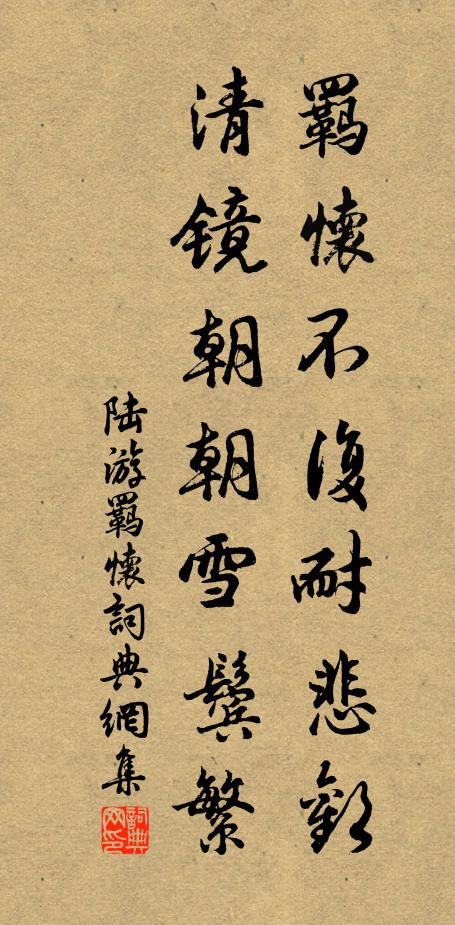 羈懷不復耐悲歡
清镜朝朝雪鬓繁
陆游羈懷詞典網集
詞典网印